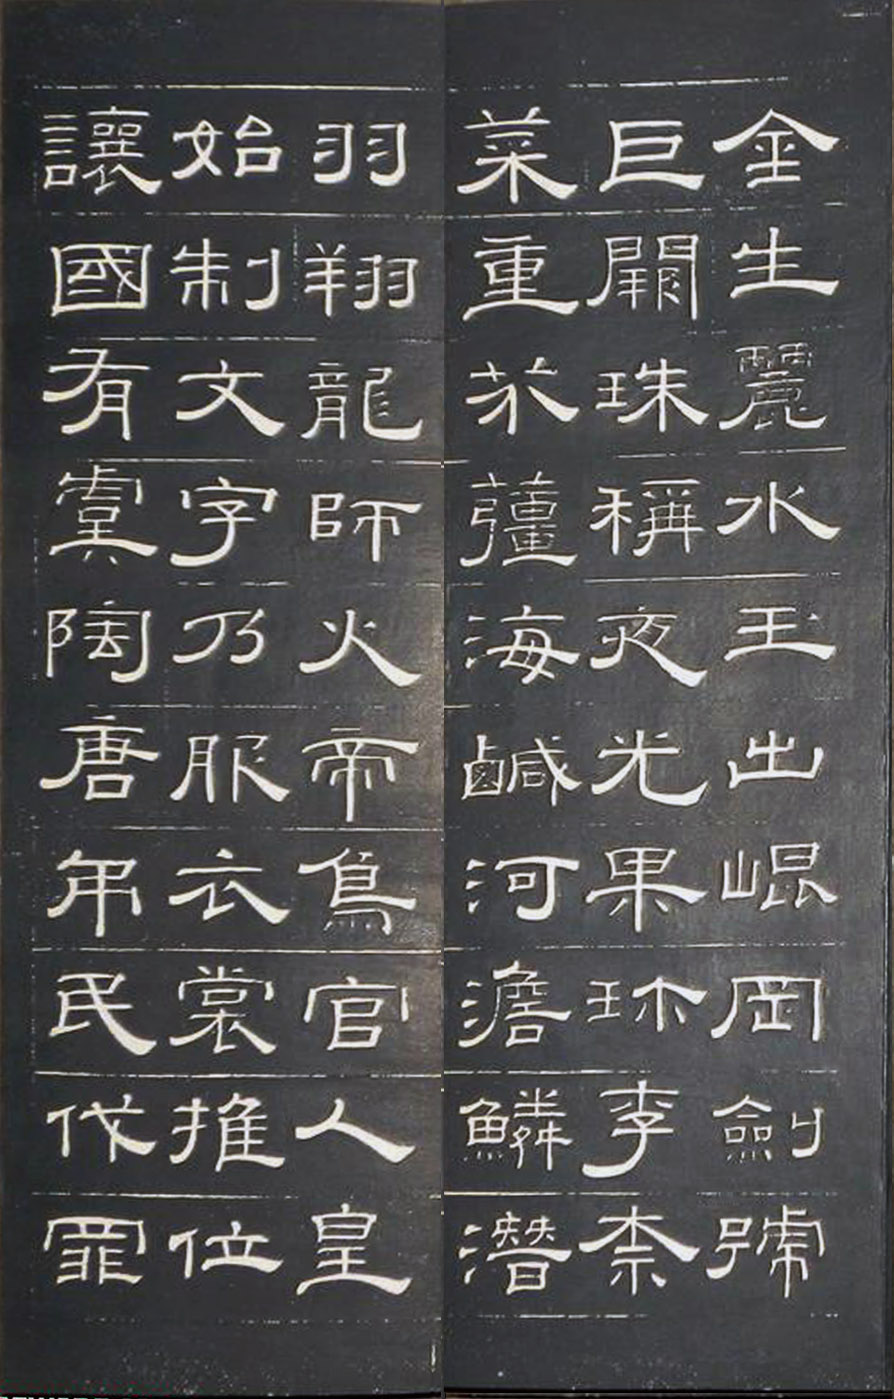 金生麗水玉出崐岡劍號
巨闕珠稱夜光果珎李柰
菜重芥薑海鹹河澹鱗潛
羽翔龍師火帝鳥官人皇
始制文字乃服衣裳推位
讓國有虞陶唐弔民伐罪